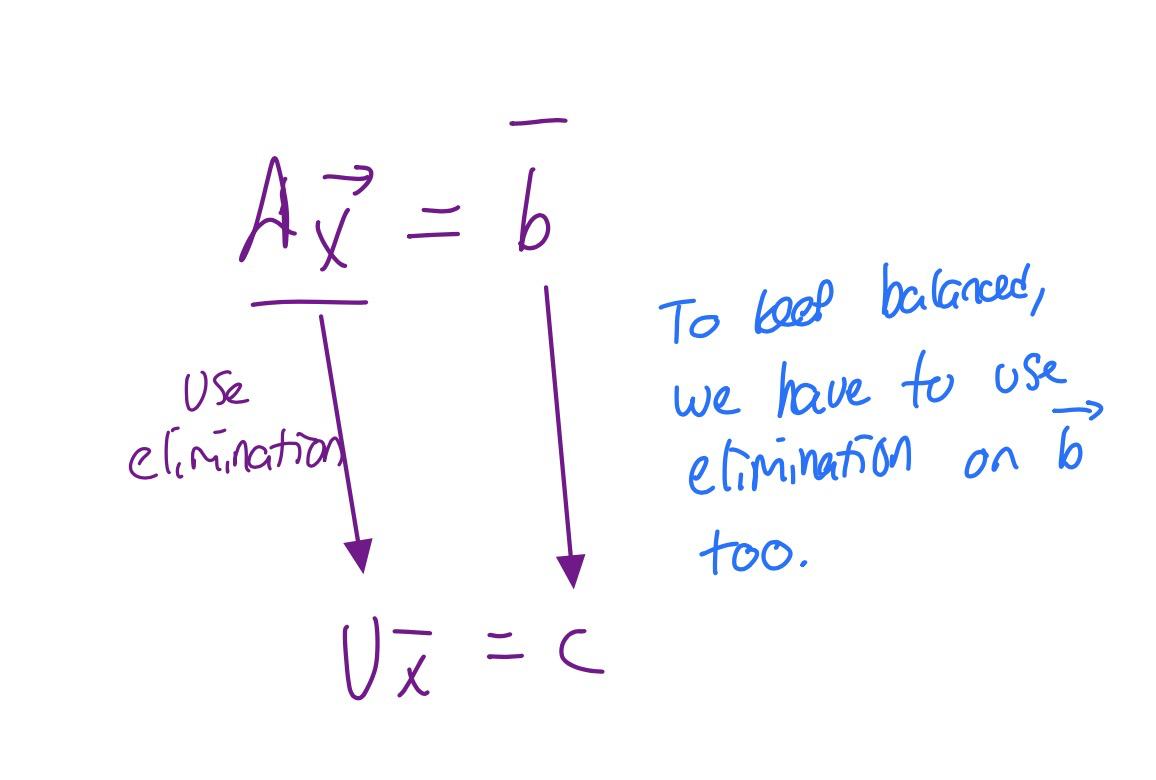 Ax⃗ = b̅
use
elimination
To keep balanced,
we have to use
elimination on b⃗
too.
Ux̅ = c